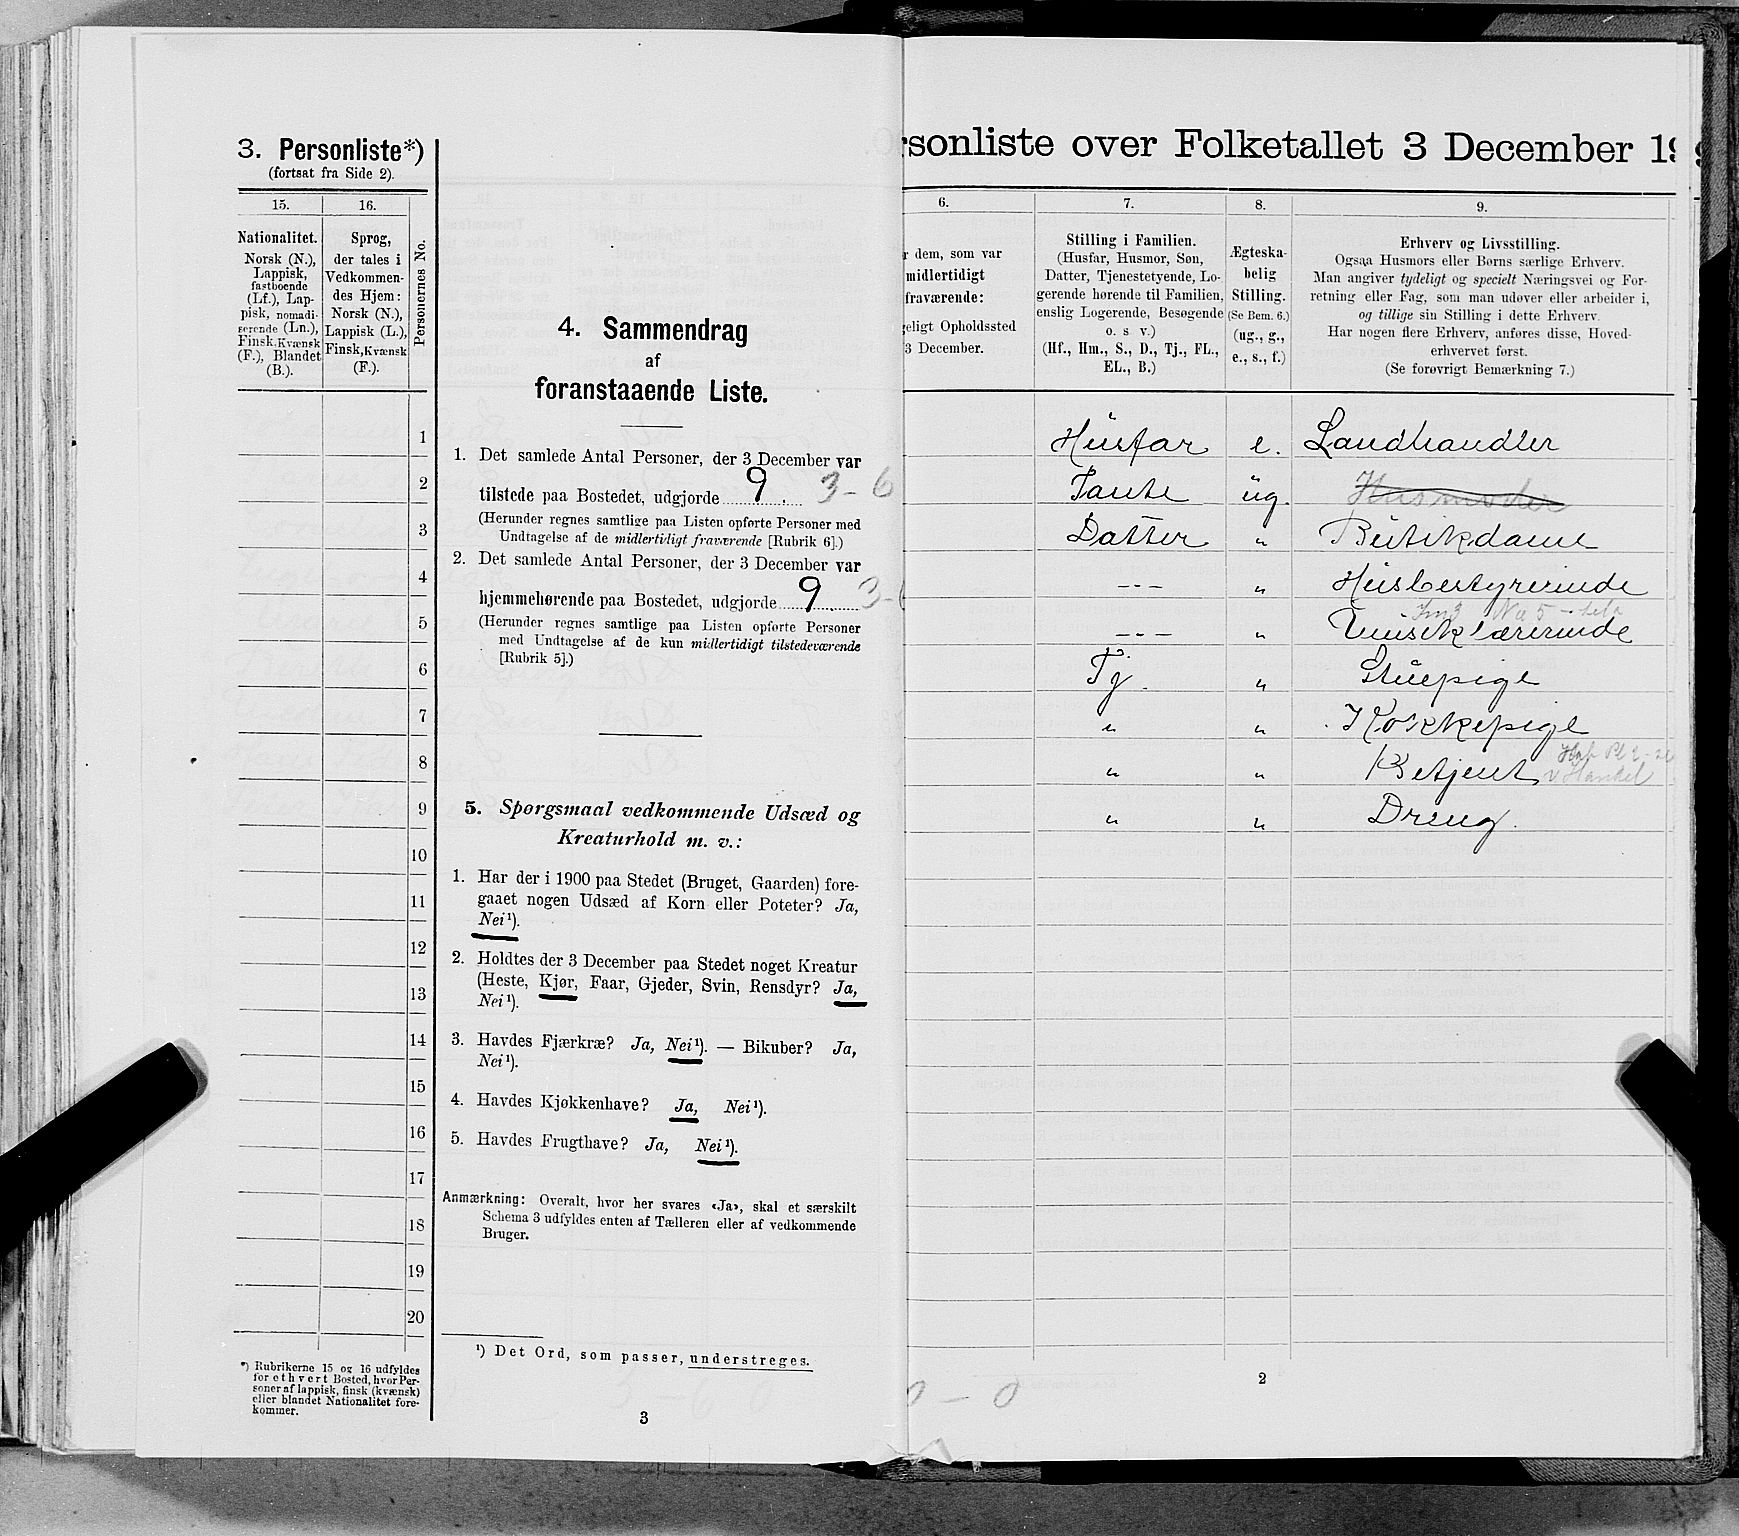 3. Personliste*)
(fortsat fra Side 2).
15.
Nationalitet.
Norsk (N.),
Lappisk,
fastboende
(Lf.), Lap-
pisk, nomadi-
serende (Ln.),
Finsk, Kvænsk
(F.), Blandet
(B.).
16.
Sprog,
der tales i
Vedkommen-
des Hjem:
Norsk (N.),
Lappisk (L.),
Finsk, Kvænsk
(F.).
Personernes No.
1
2
3
4
5
6
7
8
9
10
11
12
13
14
15
16
17
18
19
20
*) Rubrikerne 15 og 16 udfyldes
for ethvert Bosted, hvor Per-
soner af lappisk, finsk (kvænsk)
eller blandet Nationalitet fore-
kommer.
4. Sammendrag
af
foranstaaende Liste.
1. Det samlede Antal Personer, der 3 December var
tilstede paa Bostedet, udgjorde 9. 3-6
(Herunder regnes samtlige paa Listen opførte Personer med
Undtagelse af de midlertidigt fraværende [Rubrik 6].)
2. Det samlede Antal Personer, der 3 December var
hjemmehørende paa Bostedet, udgjorde 9. 3-
(Herunder regnes samtlige paa Listen opførte Personer
med Undtagelse af de kun midlertidigt tilstedeværende
[Rubrik 5].)
5. Spørgsmaal vedkommende Udsæd og
Kreaturhold m. v.:
1. Har der i 1900 paa Stedet (Bruget, Gaarden) fore-
gaaet nogen Udsæd af Korn eller Poteter? Ja,
Nei¹).
2. Holdtes der 3 December paa Stedet noget Kreatur
(Heste, Kjør, Faar, Gjeder, Svin, Rensdyr? Ja,
Nei¹).
3. Havdes Fjærkræ? Ja, Nei¹). — Bikuber? Ja,
Nei¹).
4. Havdes Kjøkkenhave? Ja, Nei¹).
5. Havdes Frugthave? Ja, Nei¹).
Anmærkning: Overalt, hvor her svares «Ja», skal et særskilt
Schema 3 udfyldes enten af Tælleren eller af vedkommende
Bruger.
¹) Det Ord, som passer, understreges.
3
rsonliste over Folketallet 3 December 19
6.
r dem, som var
midlertidigt
fraværende:
eligt Opholdssted
3 December.
7.
Stilling i Familien.
(Husfar, Husmor, Søn,
Datter, Tjenestetyende, Lo-
gerende hørende til Familien,
enslig Logerende, Besøgende
o. s. v.)
(Hf., Hm., S., D., Tj., FL.,
EL., B.)
8.
Ægteska-
belig
Stilling.
(Se Bem. 6.)
(ug., g.,
e., s., f.)
9.
Erhverv og Livsstilling.
Ogsaa Husmors eller Børns særlige Erhverv.
Man angiver tydeligt og specielt Næringsvei og For-
retning eller Fag, som man udøver eller arbeider i,
og tillige sin Stilling i dette Erhverv.
Har nogen flere Erhverv, anføres disse, Hoved-
erhvervet først.
(Se forøvrigt Bemærkning 7.)
Husfar e. Landhandler
Tante ug. Husmoder
Datter " Butikdame
--- " Husbestyrerinde
--- " Musiklærerinde
Tj. " Stuepige
" " Kokkepige
" " Betjent v Handel
" " Dreng.
0-0
2